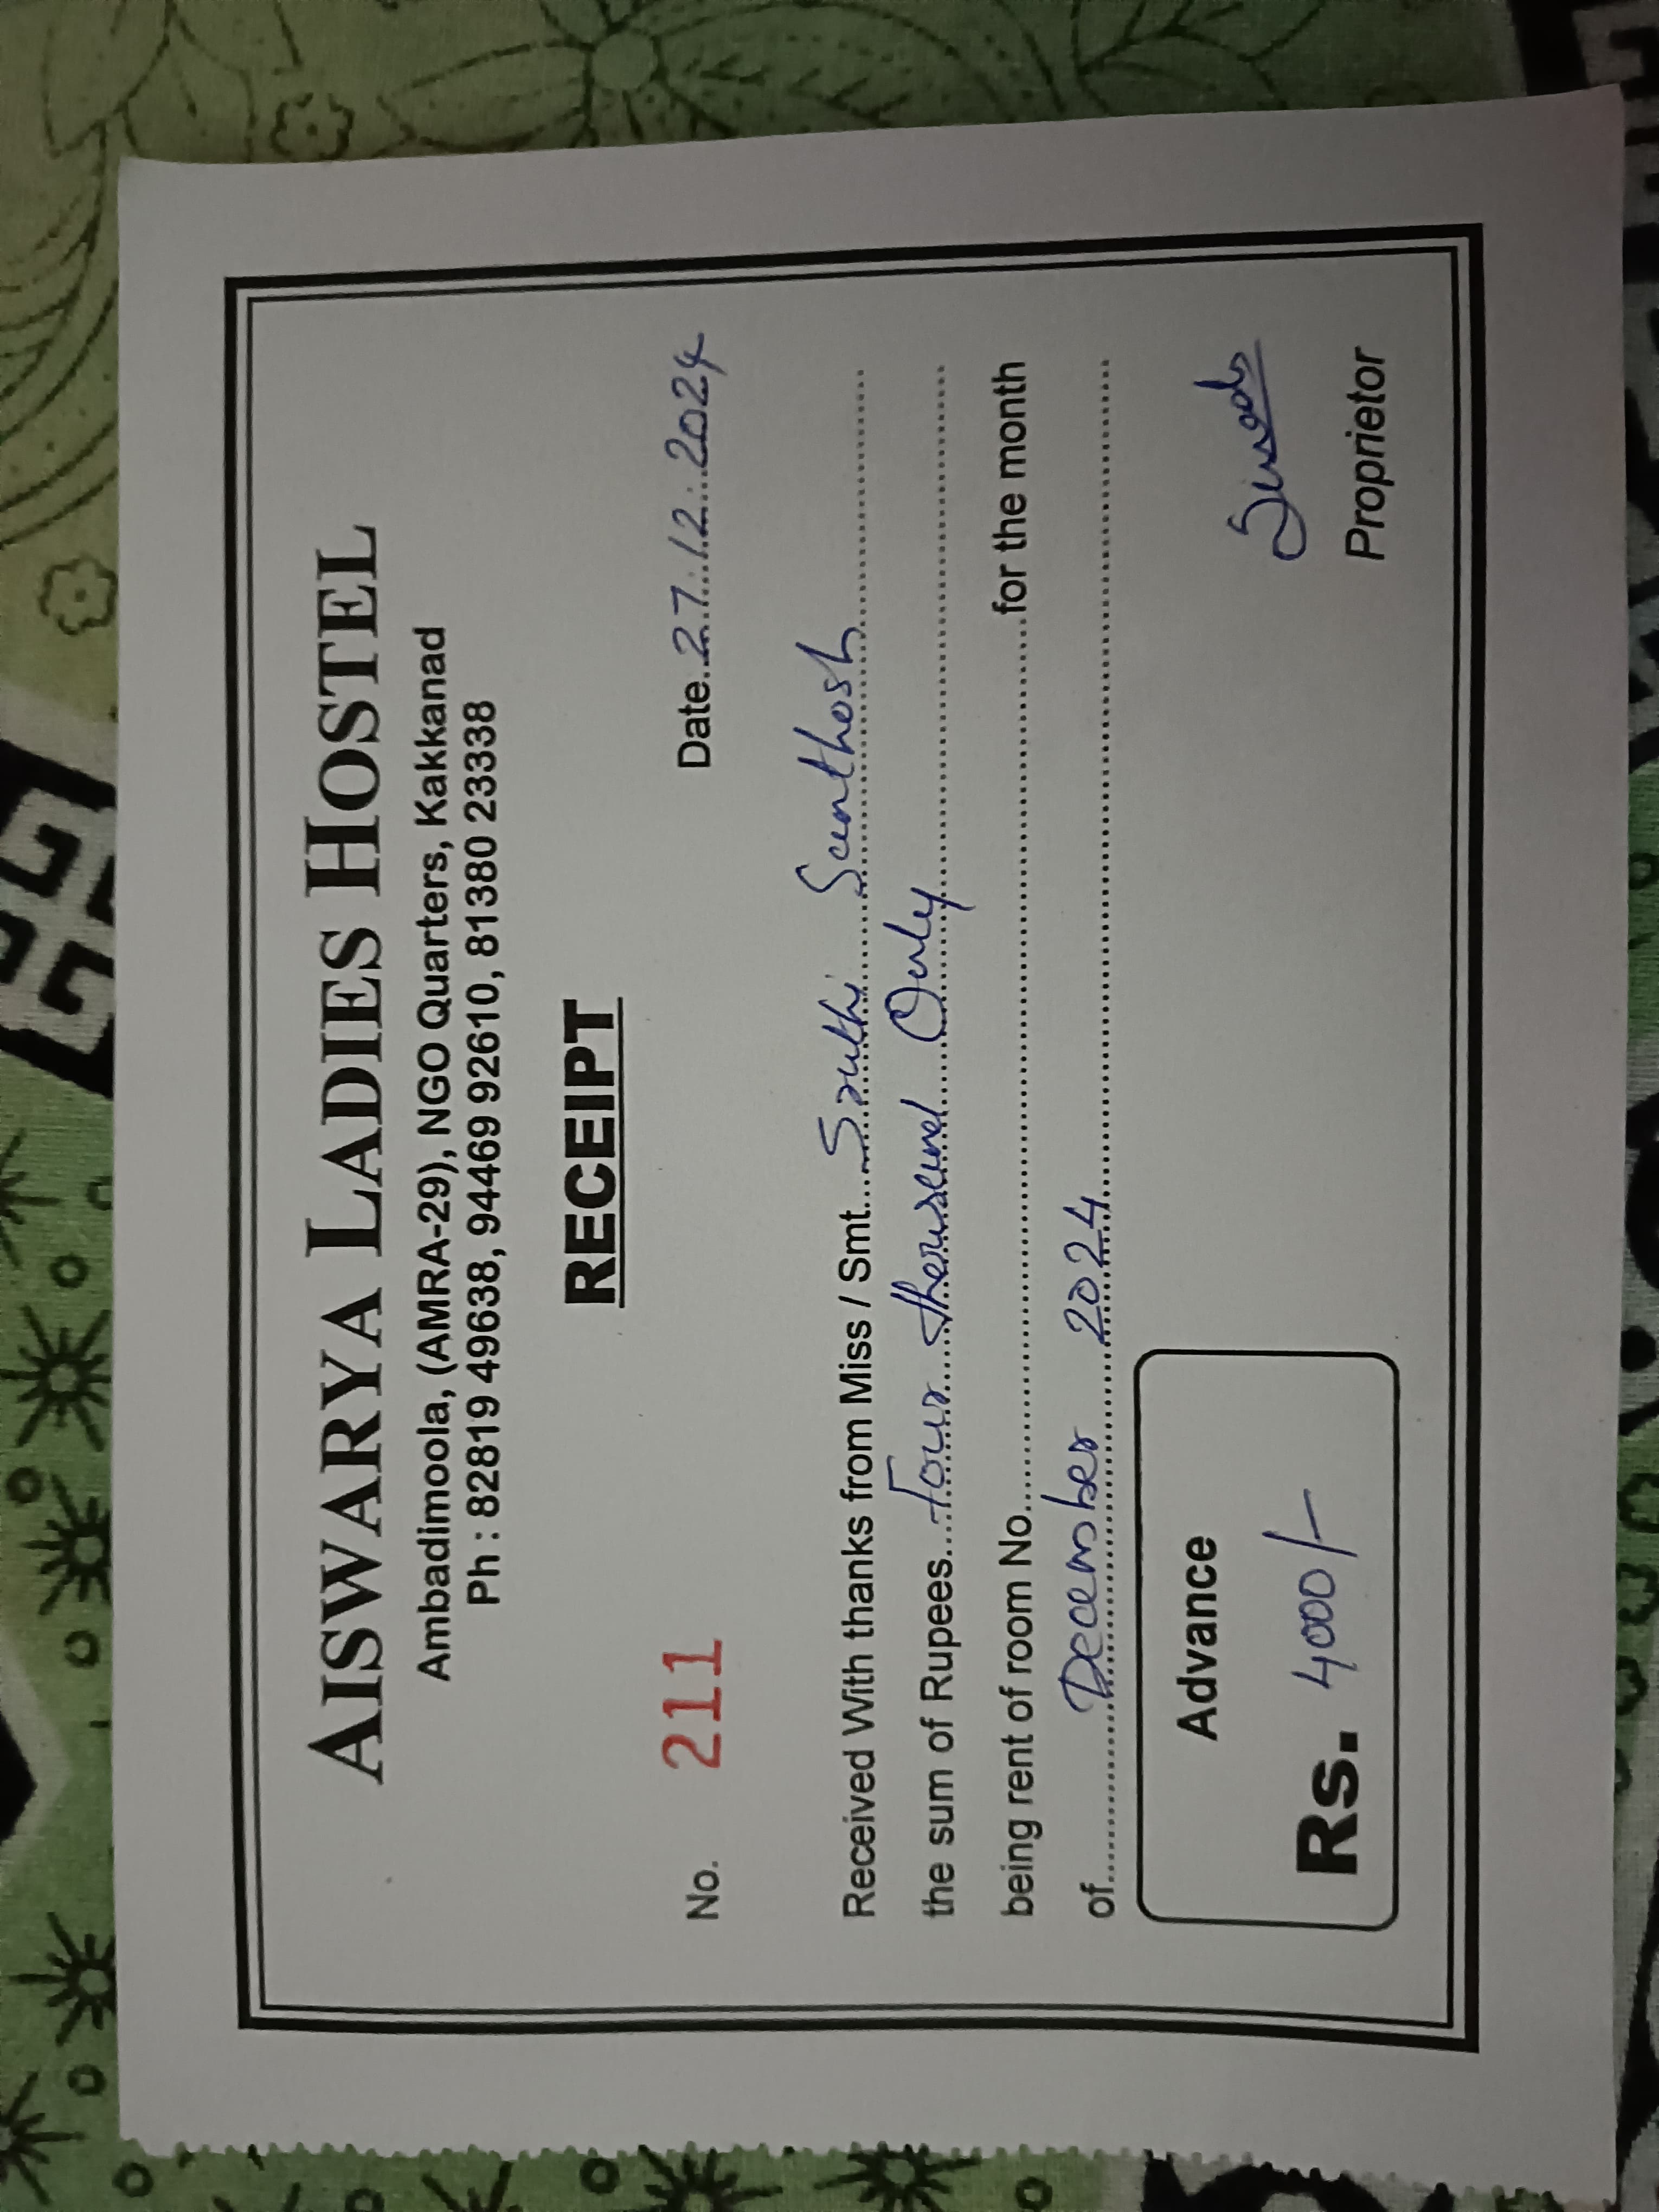 AISWARYA LADIES HOSTEL
Ambadimoola, (AMRA-29), NGO Quarters, Kakkanad
Ph : 82819 49638, 94469 92610, 81380 23338
RECEIPT
No. 211 Date 27.12.2024
Received With thanks from Miss / Smt. Sruthi Santhosh
the sum of Rupees Four thousand Only
being rent of room No. for the month
of December 2024
Advance
Rs. 4000/-
Proprietor